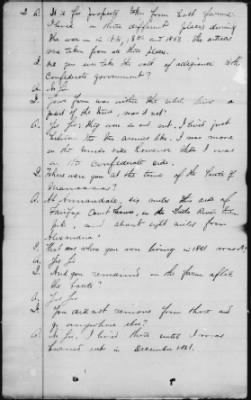 2 A. It is for property taken from both farms
I lived on three different places during
the war in 1861, and 1862, the articles
was taken from all three places.
Q. Did you ever take the oath of allegiance to the
Confederate government?
A. No Sir.
Q. Your farm was within the rebel lines a
part of the time, was it not?
A. Yes Sir; they were in and out. I lived just
between the two armies like. I was more
on the Union side however than I was
on the Confederate side.
Q. Where were you at the time of the battle of
Manassas?
A. At Annandale, six miles this side of
Fairfax Court House, on the Little River turn
pike, and about eight miles from
Alexandria.
Q. That was where you were living in 1861 was it?
A. Yes Sir
Q. And you remained on the farm after
the battle?
A. Yes Sir
Q. You did not remove from there and
go anywhere else?
A. No Sir, I lived there until I was
burned out in December 1861.